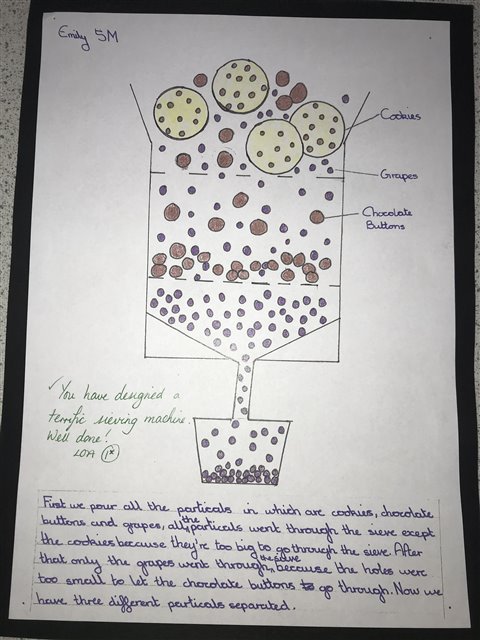 Emily 5M
Cookies
Grapes
Chocolate
Buttons
✓ You have designed a
terrific sieving machine.
Well done!
LOA 1*
First we pour all the particals in which are cookies, chocolate
buttons and grapes, all the particals went through the sieve except
the cookies because they're too big to go through the sieve. After
that only the grapes went through the seive, because the holes were
too small to let the chocolate buttons to go through. Now we
have three different particals separated.